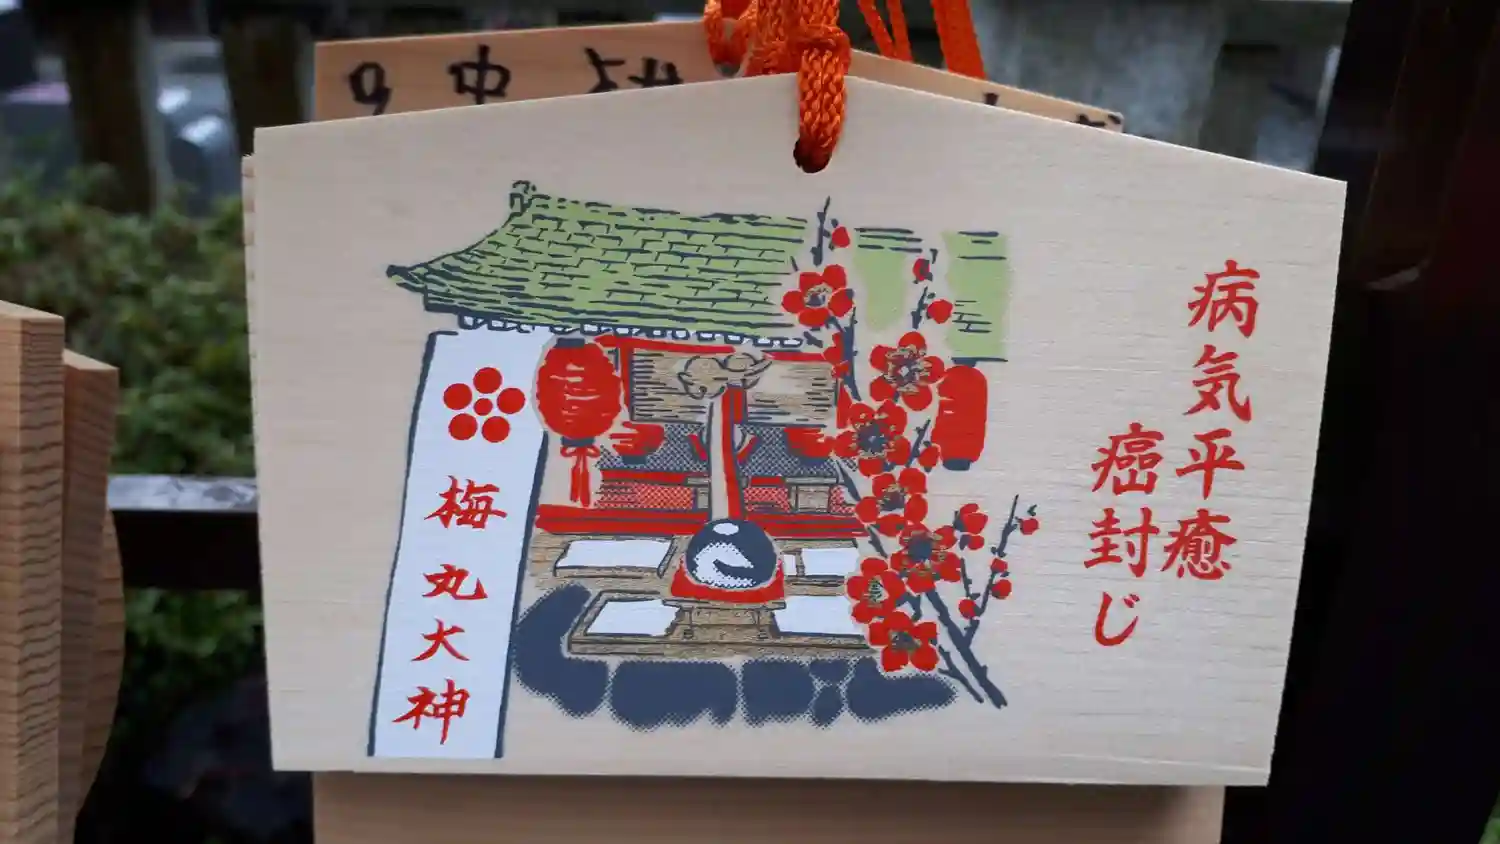 病気平癒
癌封じ
梅丸大神